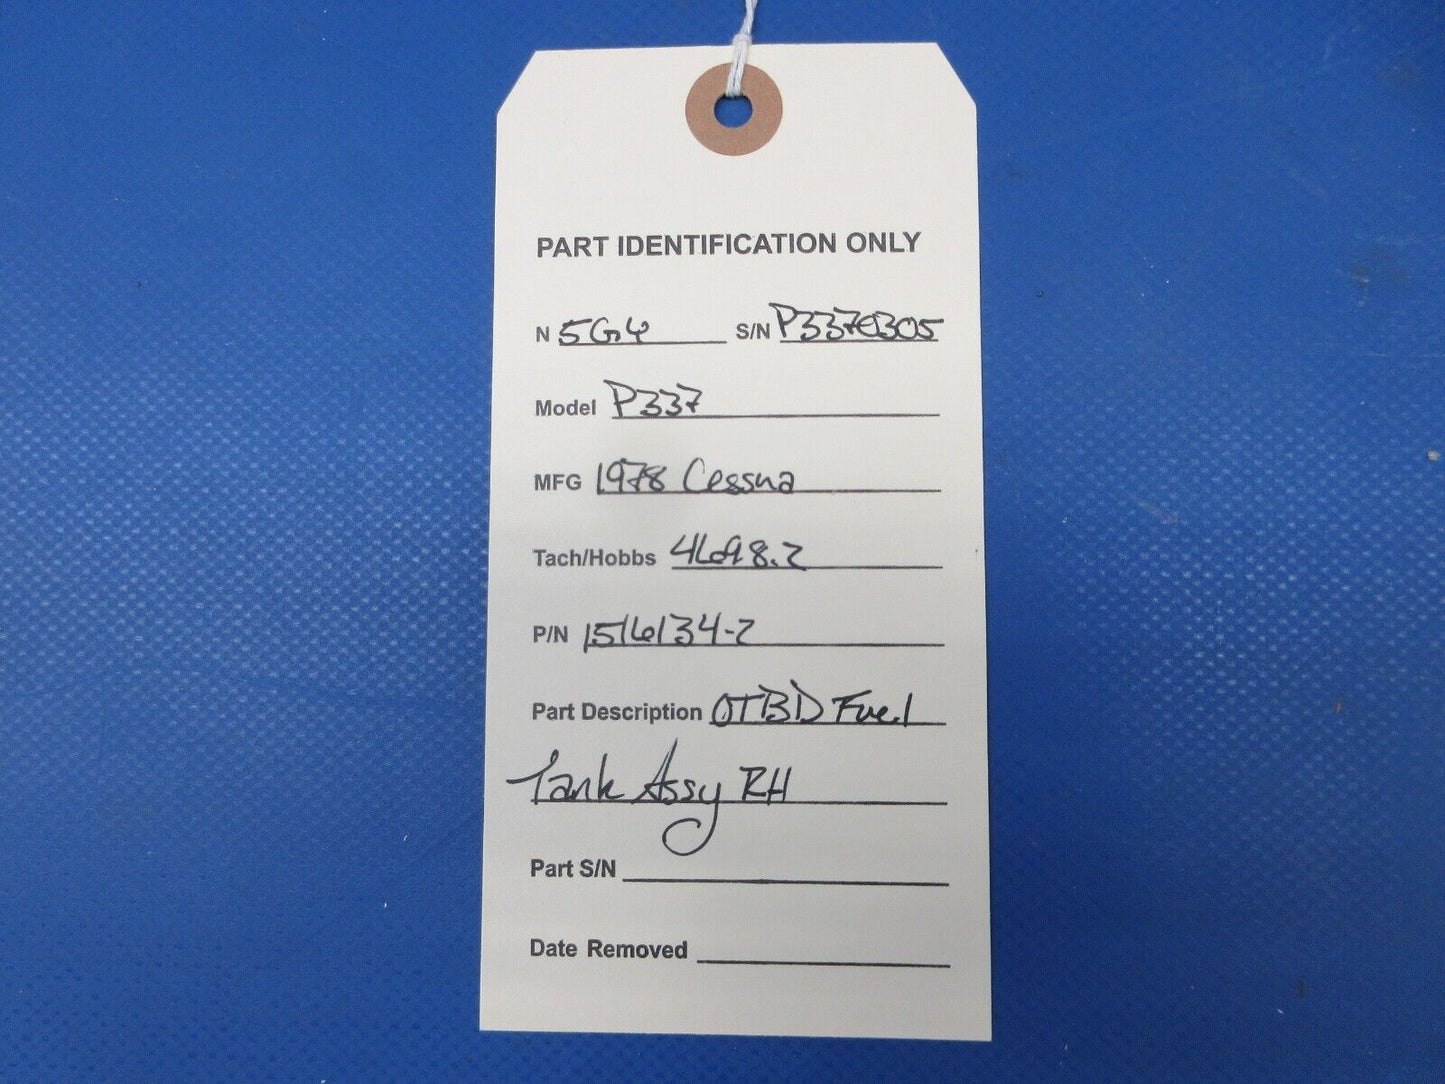 PART IDENTIFICATION ONLY
N 5G4 S/N P3370305
Model P337
MFG 1978 Cessna
Tach/Hobbs 4698.2
P/N 1516134-2
Part Description OTBD Fuel
Tank Assy RH
Part S/N
Date Removed